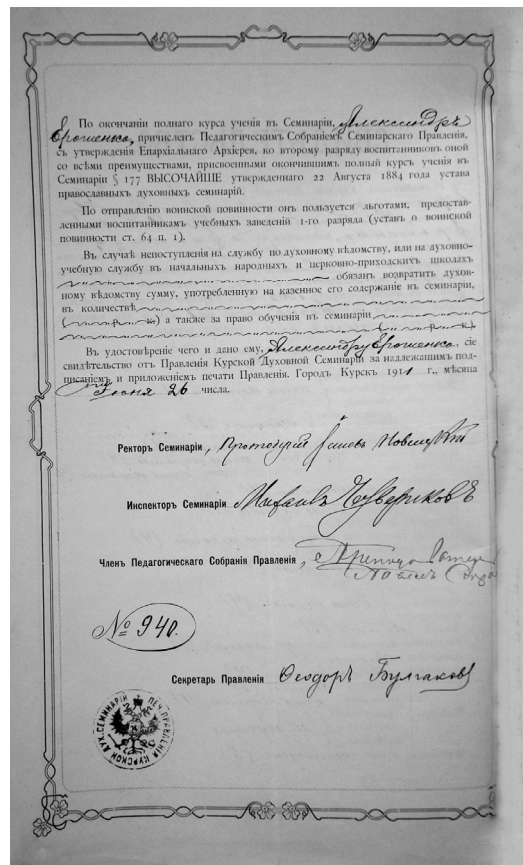 По окончаніи полнаго курса ученія въ Семинаріи, Александръ
Ерошенко, причисленъ Педагогическимъ Собраніемъ Семинарскаго Правленія,
съ утвержденія Епархіальнаго Архіерея, ко второму разряду воспитанниковъ оной
со всѣми преимуществами, присвоенными окончившимъ полный курсъ ученія въ
Семинаріи § 177 ВЫСОЧАЙШЕ утвержденнаго 22 Августа 1884 года устава
православныхъ духовныхъ семинарій.
По отправленію воинской повинности онъ пользуется льготами, предостав-
ленными воспитанникамъ учебныхъ заведеній 1-го разряда (уставъ о воинской
повинности ст. 64 п. 1).
Въ случаѣ непоступленія на службу по духовному вѣдомству, или на духовно-
учебную службу въ начальныхъ народныхъ и церковно-приходскихъ школахъ
обязанъ возвратить духов-
ному вѣдомству сумму, употребленную на казенное его содержаніе въ семинаріи,
въ количествѣ
а также за право обученія въ семинаріи
Въ удостовѣреніе чего и дано ему, Александру Ерошенко, сіе
свидѣтельство отъ Правленія Курской Духовной Семинаріи за надлежащимъ под-
писаніемъ и приложеніемъ печати Правленія. Городъ Курскъ 1911 г., мѣсяца
Іюня 26 числа.
Ректоръ Семинаріи, Протоіерей Іаковъ Новицкій
Инспекторъ Семинаріи Михаилъ
Членъ Педагогическаго Собранія Правленія,
№ 940.
Секретарь Правленія Ѳеодоръ Булгаковъ
ПЕЧ. ПРАВЛЕНІЯ КУРСКОЙ ДУХ. СЕМИНАРІИ